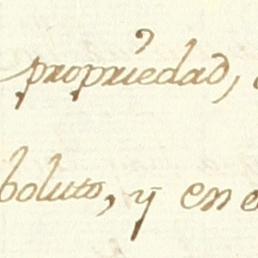 propriedad,
boluto, y en e